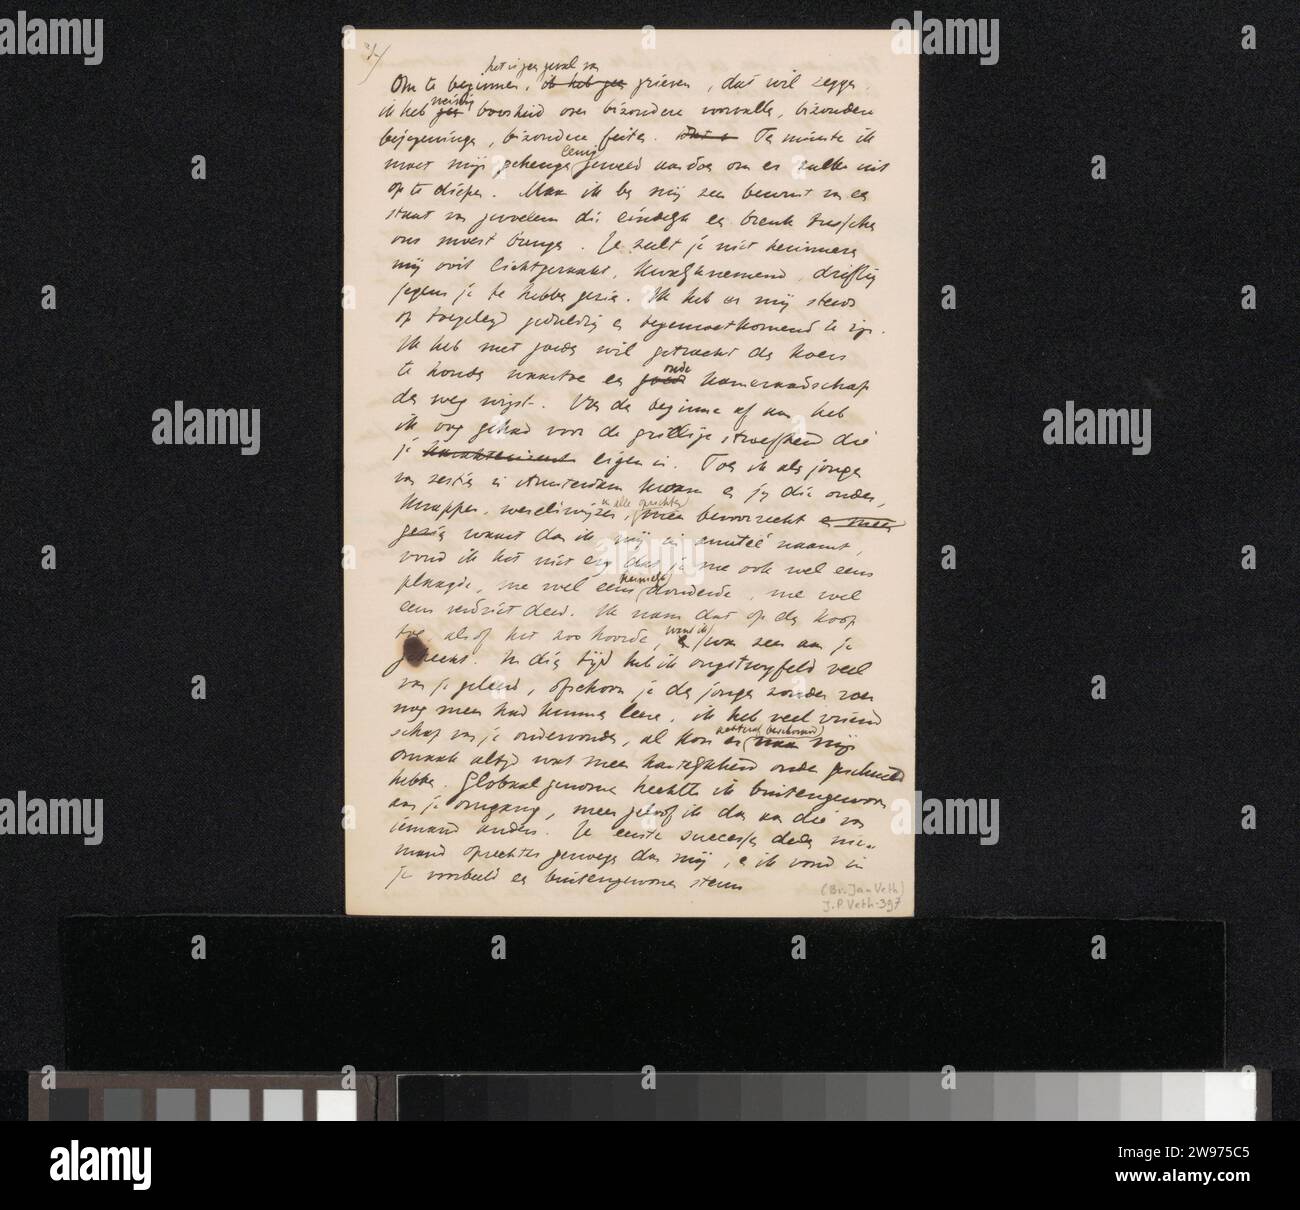 het is geen geval van
Om te beginnen, ik heb geen grieven, dat wil zeggen
ik heb geen weinig boosheid over bizondere voorvallen, bizondere
bejegeningen, bizondere feiten. Ten minste ik
moet mijn geheugen geweld aandoen om er zulke uit
op te diepen. Maar ik ben mij zeer bewust van een
staat van gevoelens die eindelijk een breuk tusschen
ons moest brengen. Je zult je niet herinneren
mij ooit lichtgeraakt, kwalijknemend, driftig
jegens je te hebben gezien. Ik heb er mij steeds
op toegelegd geduldig en tegemoetkomend te zijn.
Ik heb met goeden wil getracht den koers
te houden waartoe een goede oude kameraadschap
den weg wijst. Van den beginne af aan heb
ik oog gehad voor de grillige stroefheid die
je eigen is. Toen ik als jongen
van zestien in Amsterdam kwam en jij die ouder,
knapper, wereldwijzer, in alle opzichten meer bevoorrecht en meer
gezien waart dan ik mij in amitié naamt,
vond ik het niet erg dat je me ook wel eens
plaagde, me wel eens donderde, me wel
eens verdriet deed. Ik nam dat op den koop
toe alsof het zoo hoorde, want ik was zeer aan je
gehecht. In dien tijd heb ik ongetwijfeld veel
van je geleerd, ofschoon je den jongen zonder zoen
nog meer had kunnen leeren. ik heb veel vriend
schap van je ondervonden, al kon er mijn
omvaak altijd wat meer hartelijkheid onder gescholen
hebben. Globaal genomen hechtte ik buitengewoon
aan je omgang, meer geloof ik dan aan die van
iemand anders. Je eerste successen deden nie-
mand oprechter genoegen dan mij, en ik vond in
je voorbeeld een buitengewonen steun
(Br. Jan Veth)
J.P. Veth-397
alamy
a
Image ID: 2W975C5
www.alamy.com